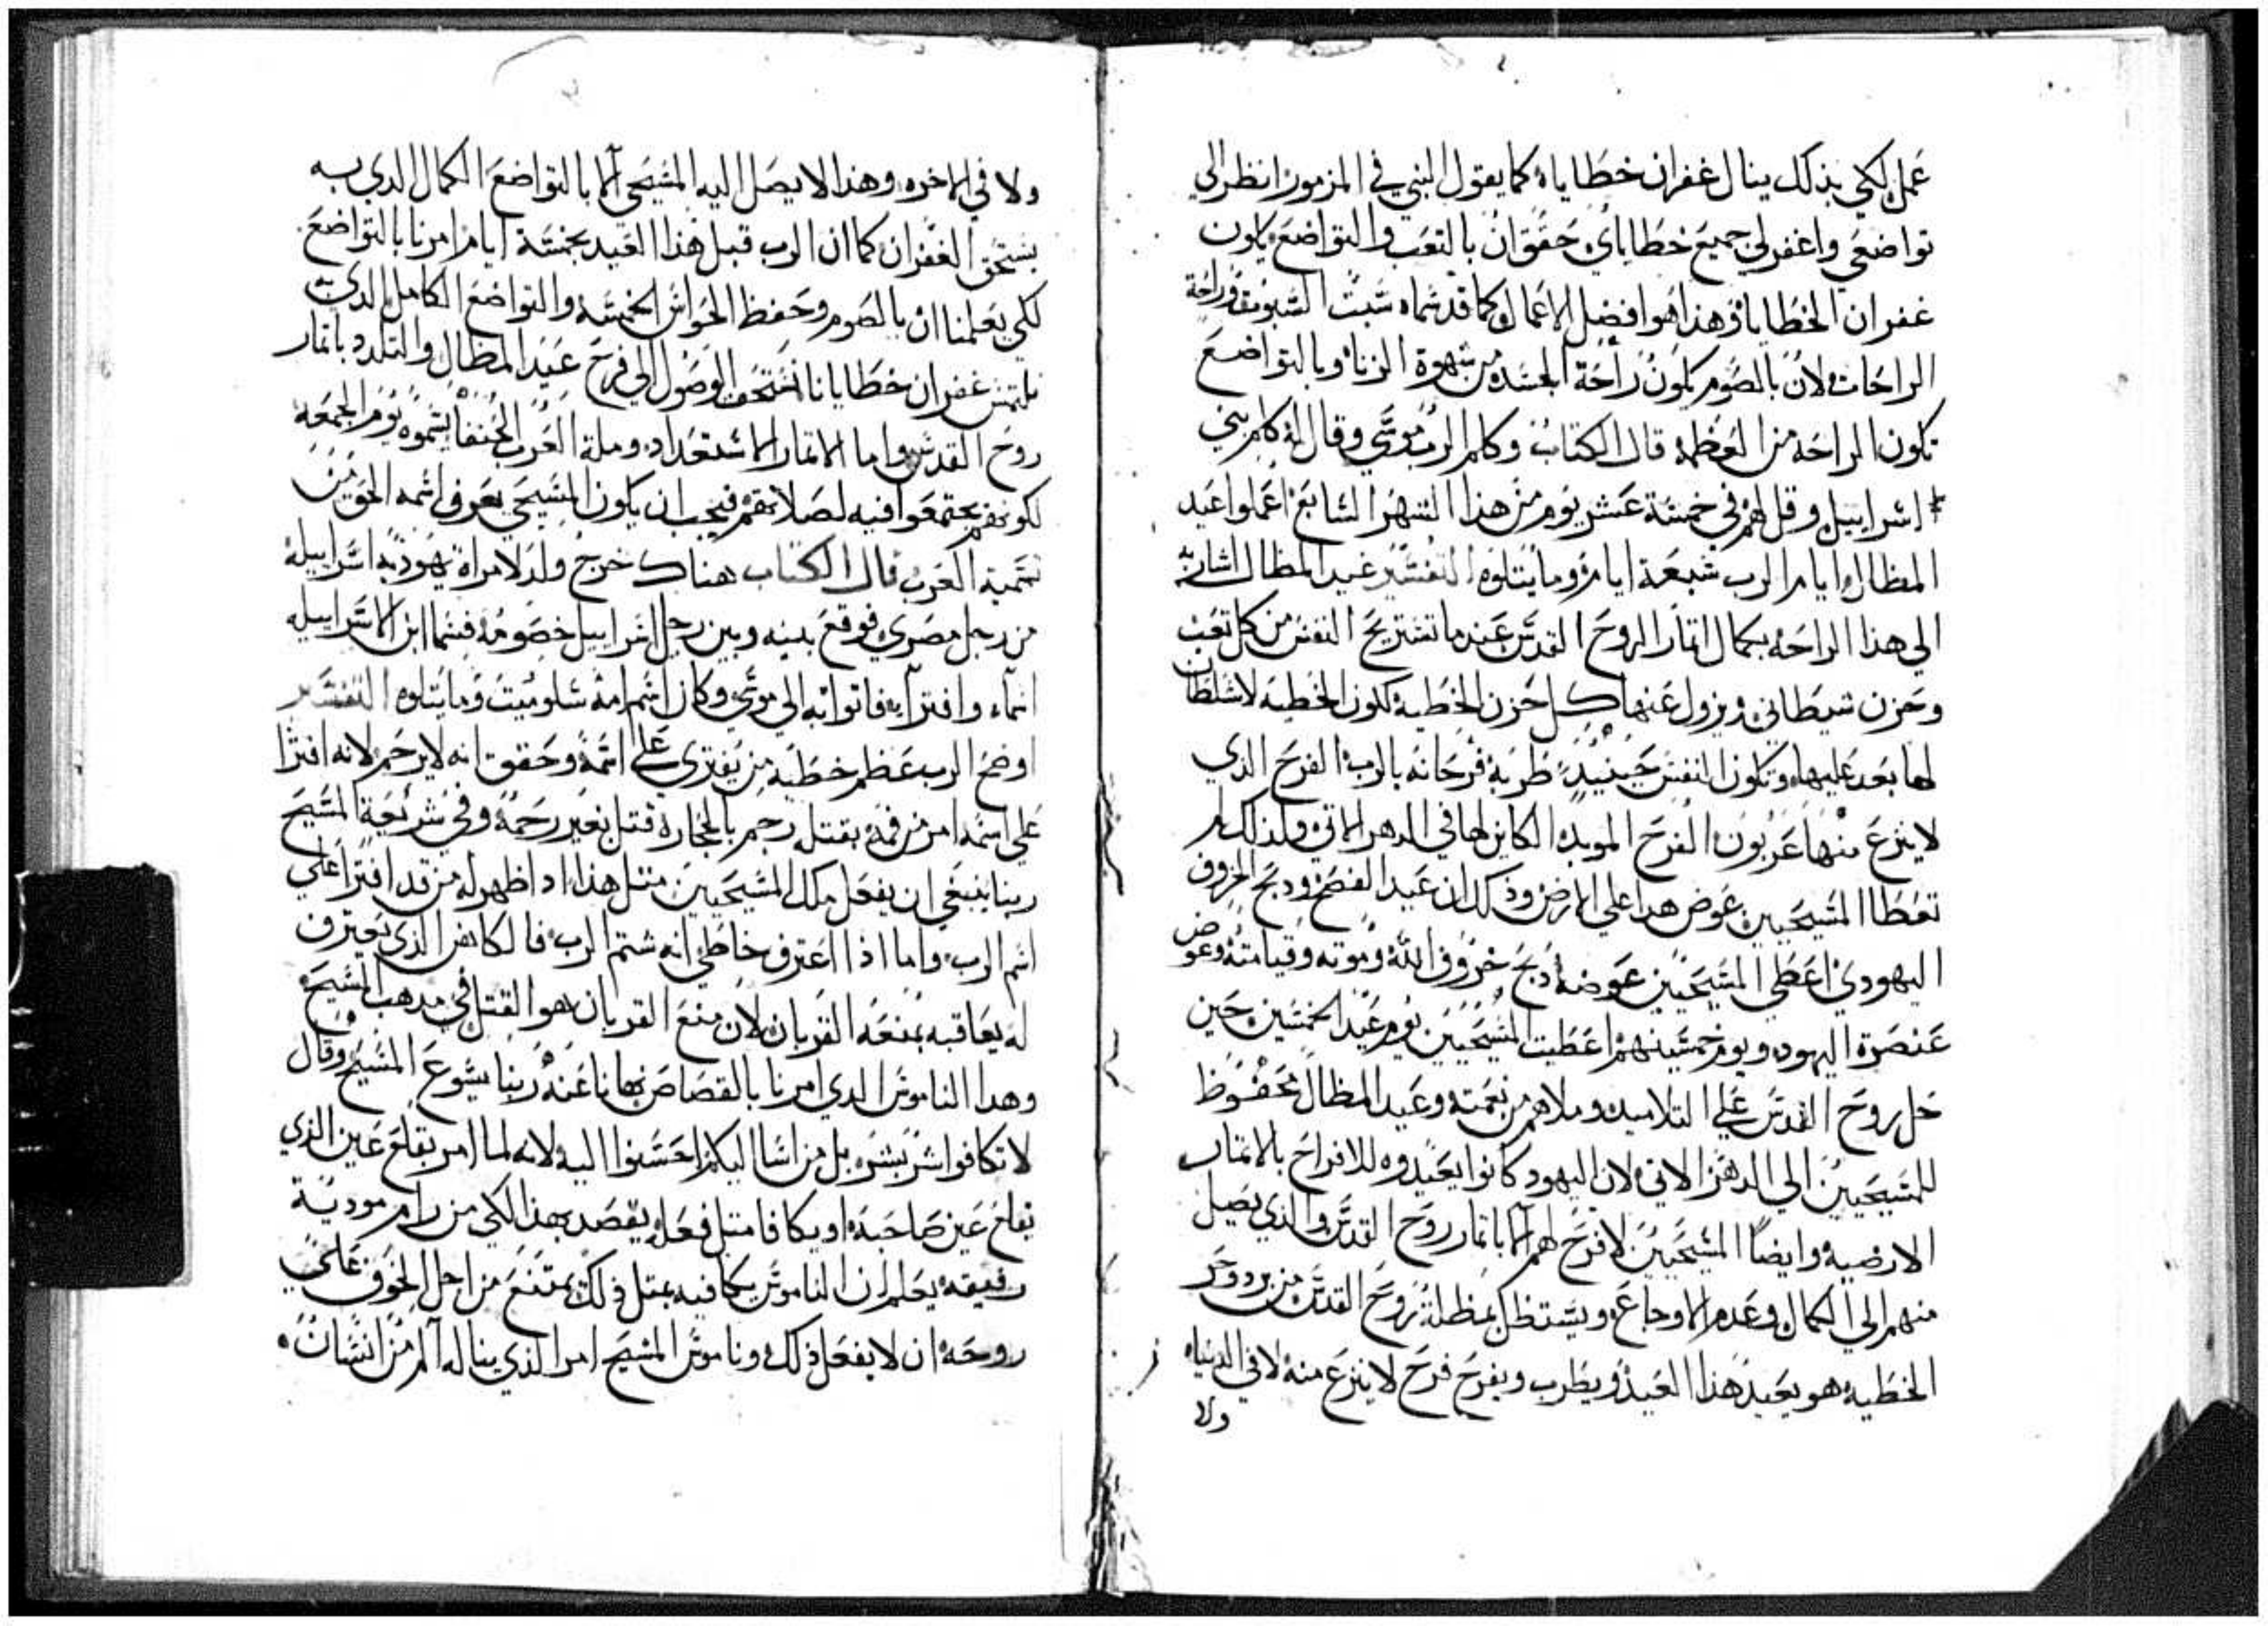 عمل لكي بذلك ينال غفران خطاياه كما يقول النبي في المزمور انظر الي
تواضعي واغفر لي جميع خطاياي حقق ان بالتعب والتواضع يكون
غفران الخطايا وهذا هوا افضل الاعمال وكما قد سماه سبت السبوت وراحة
الراحات لان بالصوم يكون راحة الجسد من شهوة الزنا وبالتواضع
تكون الراحه من العظمه قال الكتاب وكلم الرب موسي وقال له كلم بني
اسراييل وقل لهم في خمسة عشر يوم من هذا الشهر السابع اعملوا عيد
المظال ايام الرب سبعة ايام وما يتلوه التفسير عيد المظال اشاره
الي هذا الراحه بكمال اتمار الروح القدس عند ما تستريح النفس من كل تعب
وحزن شيطاني ويزول عنها كل احزن الخطية لكون الخطية لا سلطان
لها بعد عليها وتكون النفس حينيد طربة فرحانه بالرب الفرح الذي
لا ينزع منها عربون الفرح الموبد الكاين لها في الدهر الاتي ولذلك لم
تعطا المسيحيين عوض هدا علي الارض وذلك ان عيد الفصح ودبح الخروف
اليهودي اعطي المسيحيين عوضه دبح خروف الله وموته وقيامته وعوض
عنصرة اليهود ويوم خمسينهم اعطيت المسيحيين يوم عيد الخمسين حين
حل روح القدس علي التلاميد وملاهم من نعمته وعيد المظال محفوظ
للمسيحيين الي الدهر الاتي لان اليهود كانوا يعيدوه للافراح بالاتمار
الارضيه وايضا المسيحيين لا فرح لهم الا باتمار روح القدس والذي يصل
منهم الي الكمال وعدم الاوجاع ويستظل بمظلة روح القدس من برد وحر
الخطيه هو يعيد هذا العيد ويطرب ويفرح فرح لا ينزع منه لا في الدنياه
ولا
ولا في الاخره وهذا لا يصل اليه المسيحي الا بالتواضع الكمال الدي به
يستحق الغفران كما ان الرب قبل هذا العيد بخمسة ايام امرنا بالتواضع
لكي يعلمنا ان بالصوم وحفظ الحواس الخمسه والتواضع الكامل الدي به
نلتمس غفران خطايانا نستحق الوصول الي فرح عيد المظال والتلدد باتمار
روح القدس واما الاتمار الاستعداد وملة العرب الحنفا يسموه يوم الجمعه
لكونهم يجتمعوا فيه لصلاتهم فيجب ان يكون المسيحي يعرف اسمه الحق من
تسمية العرب قال الكتاب هناك خرج ولد لامراة يهودية اسراييلية
من رجل مصري فوقع بينه وبين رجل اسراييل خصومه فسما ابن الاسراييليه
اسماء وافترا به فاتوا به الي موسي وكان اسم امه سلوميت وما يتلوه التفسير
اوضح الرب عظم خطية من يفتري علي اسمه وحقق انه لا يرحم لانه افترا
علي اسمه امر من فمه بقتله رجم بالحجارة قتل بغير رحمة وفي شريعة المسيح
ربنا ينبغي ان يفعل ملك المسيحيين متل هذا اذا ظهر له من قد افترا علي
اسم الرب واما اذا اعترف خاطي انه شتم الرب فالكاهن الذي يعترف
له يعاقبه بمنعه القربان لان منع القربان هوا القتل في مدهب المسيح
وهدا الناموس الدي امرنا بالقصاص نهانا عنه ربنا يسوع المسيح وقال
لا تكافوا شر بشر بل من اسا اليكم احسنوا اليه لانه لما امر بقلع عين الذي
يقلع عين صاحبه او يكافا متل فعله يقصد بهذا لكي من رام مودية
رفيقه يعلم ان الناموس يكافيه بمتل ذلك يمتنع من اجل الخوف علي
روحه ان لا يفعل ذلك وناموس المسيح امر الذي يناله الم من انسان